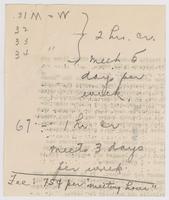 31 M - W
32
33 " } 2 hr. cr.
34 meet 5
days per
week
67 - 1 hr cr
meets 3 days
per week
Fee: 75¢ per "meeting hour"